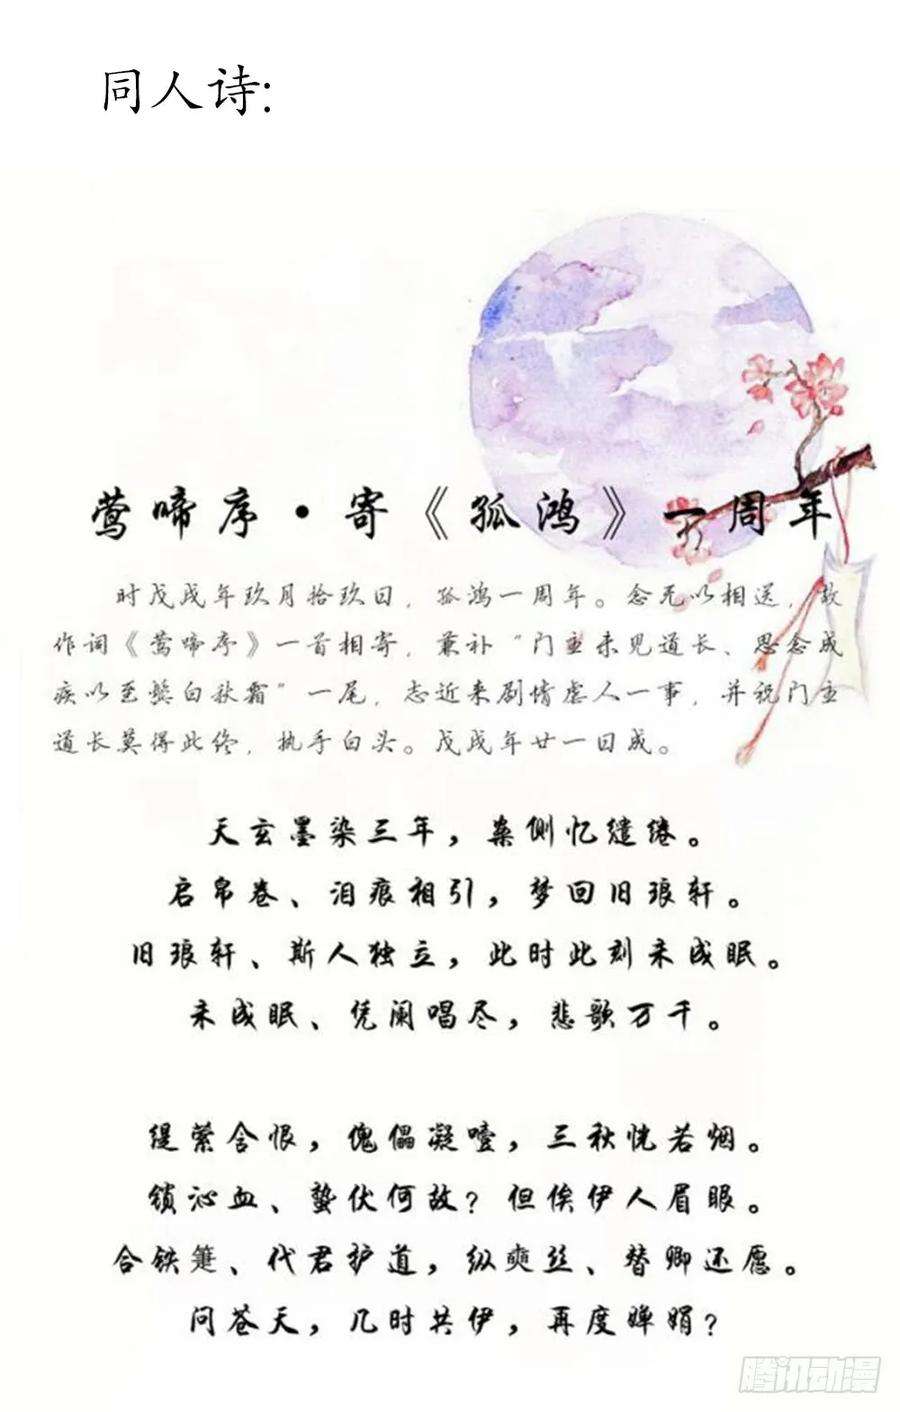 同人诗:
莺啼序·寄《孤鸿》一周年
时戊戌年玖月拾玖日，孤鸿一周年。念无以相送，故
作词《莺啼序》一首相寄，兼补“门主未见道长、思念成
疾以至鬓白秋霜”一尾，志近来剧情虐人一事，并祝门主
道长莫得此终，执手白头。戊戌年廿一日成。
天玄墨染三年，案侧忆缱绻。
启帛卷、泪痕相引，梦回旧琅轩。
旧琅轩、斯人独立，此时此刻未成眠。
未成眠、凭阑唱尽，悲歌万千。
缇萦含恨，傀儡凝噎，三秋恍若烟。
锁沁血、蛰伏何故？但俟伊人眉眼。
合铁箑、代君护道，纵奭丝、替卿还愿。
问苍天，几时共伊，再度婵娟？
腾讯动漫